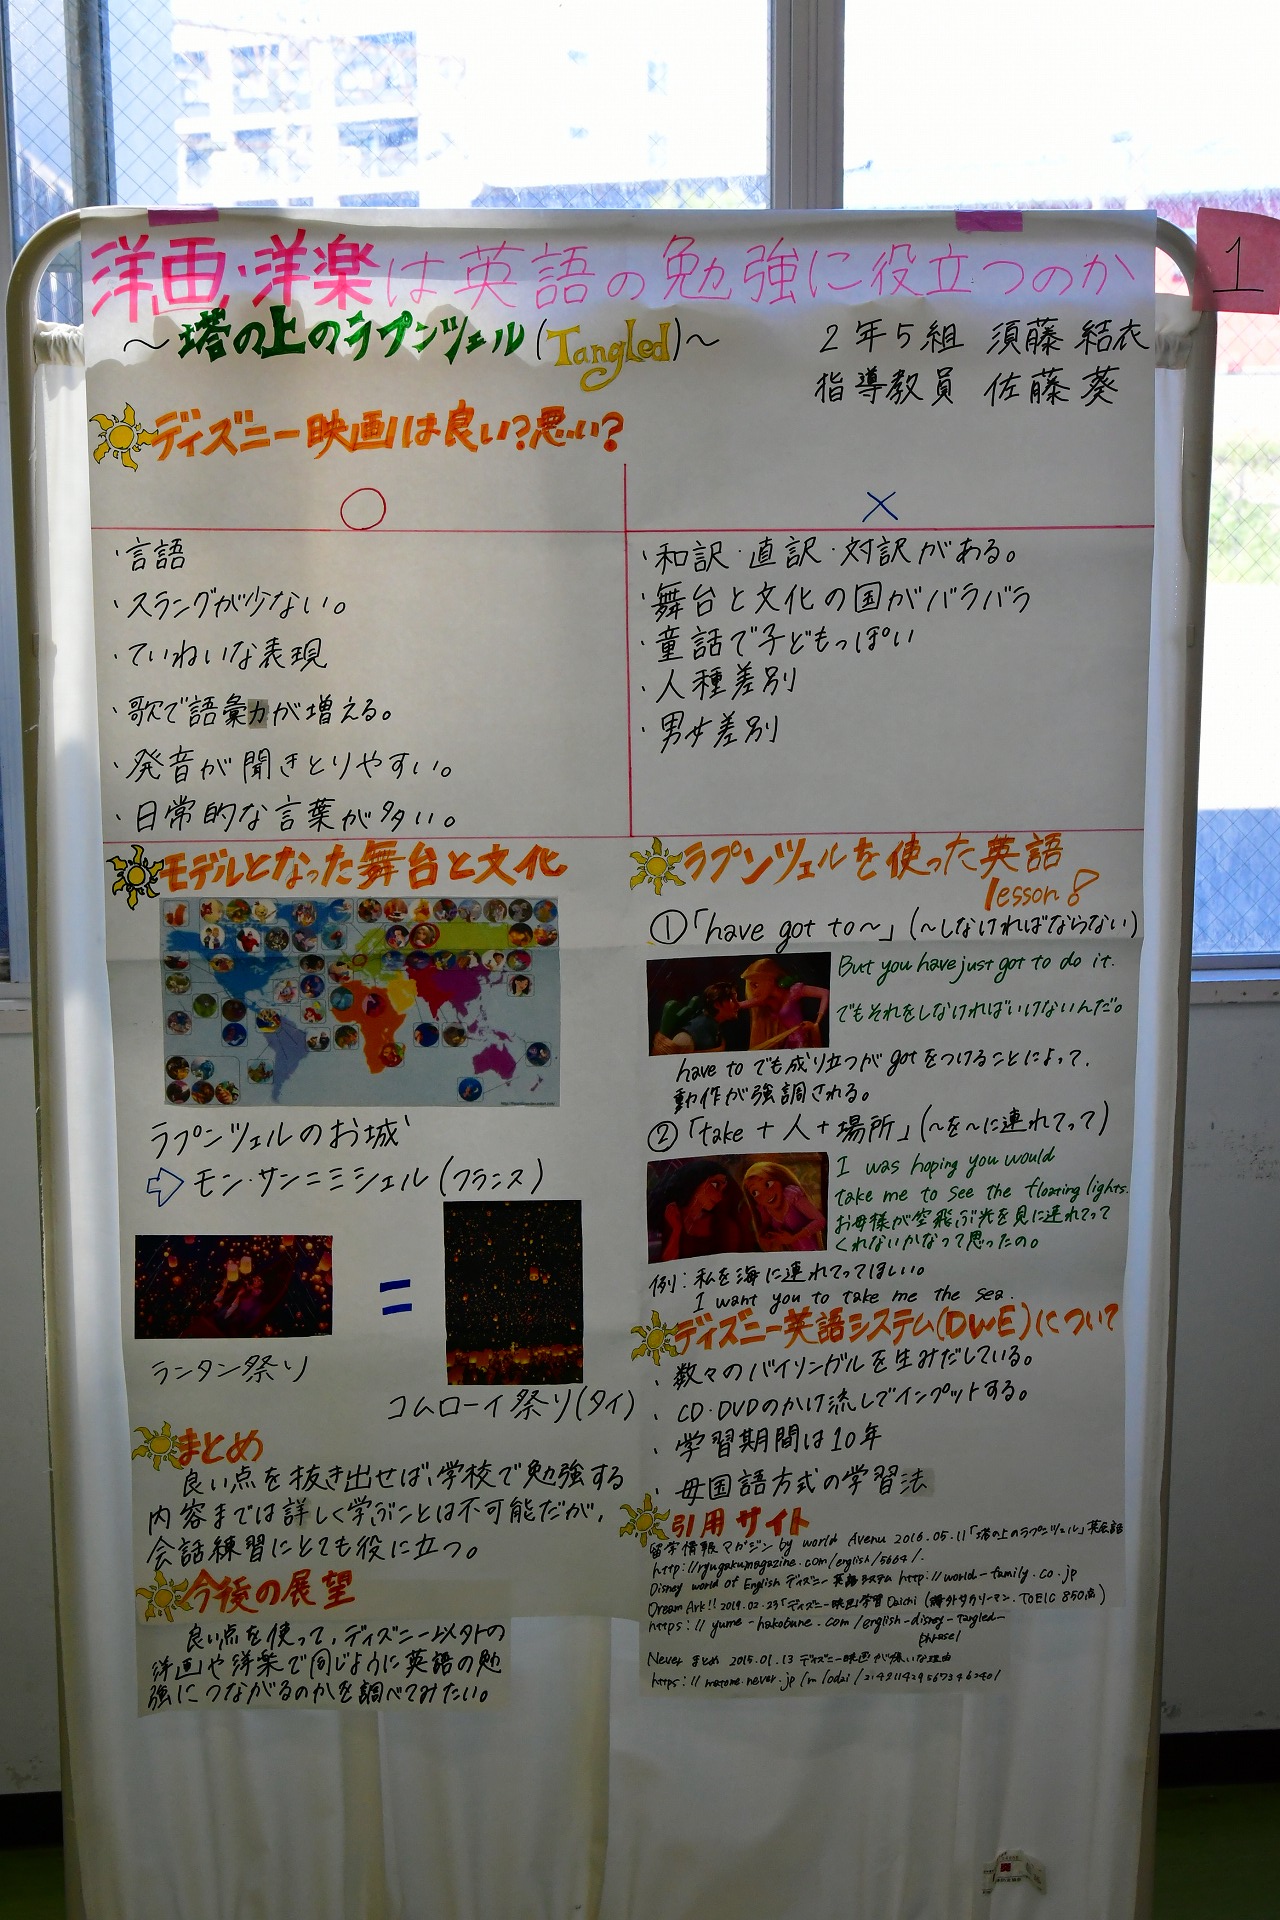 洋画・洋楽は英語の勉強に役立つのか
1
～塔の上のラプンツェル(Tangled)～
2年5組 須藤 結衣
指導教員 佐藤 葵
ディズニー映画は良い?悪い?
○
・言語
・スラングが少ない。
・ていねいな表現
・歌で語彙力が増える。
・発音が聞きとりやすい。
・日常的な言葉が多い。
×
・和訳・直訳・対訳がある。
・舞台と文化の国がバラバラ
・童話で子どもっぽい
・人種差別
・男女差別
モデルとなった舞台と文化
ラプンツェルのお城
⇨モン・サン=ミシェル(フランス)
=
ランタン祭り
コムローイ祭り(タイ)
まとめ
良い点を抜き出せば、学校で勉強する
内容までは詳しく学ぶことは不可能だが、
会話練習にとても役に立つ。
今後の展望
良い点を使って、ディズニー以外の
洋画や洋楽で同じように英語の勉
強につながるのかを調べてみたい。
ラプンツェルを使った英語
lesson 8
①「have got to～」(～しなければならない)
But you have just got to do it.
でもそれをしなければいけないんだ。
have to でも成り立つが got をつけることによって、
動作が強調される。
②「take + 人 + 場所」(～を～に連れてって)
I was hoping you would
take me to see the floating lights.
お母様が空飛ぶ光を見に連れてって
くれないかなって思ったの。
例：私を海に連れてってほしい。
I want you to take me the sea.
ディズニー英語システム(DWE)について
・数々のバイリンガルを生みだしている。
・CD・DVDのかけ流しでインプットする。
・学習期間は10年
・母国語方式の学習法
引用サイト
留学情報マガジン by world Avenu 2016.05.11「塔の上のラプンツェル」英会話
http://ryugakumagazine.com/english/5664/.
Disney world of English ディズニー英語システム http://world-family.co.jp
Dream Ark!! 2019.02.23「ディズニー映画」学習 Daichi (海外サラリーマン.TOEIC 850点)
https://yume-hakobune.com/english-disney-tangled-
phrase/
Never まとめ 2015.01.13 ディズニー映画が嫌いな理由